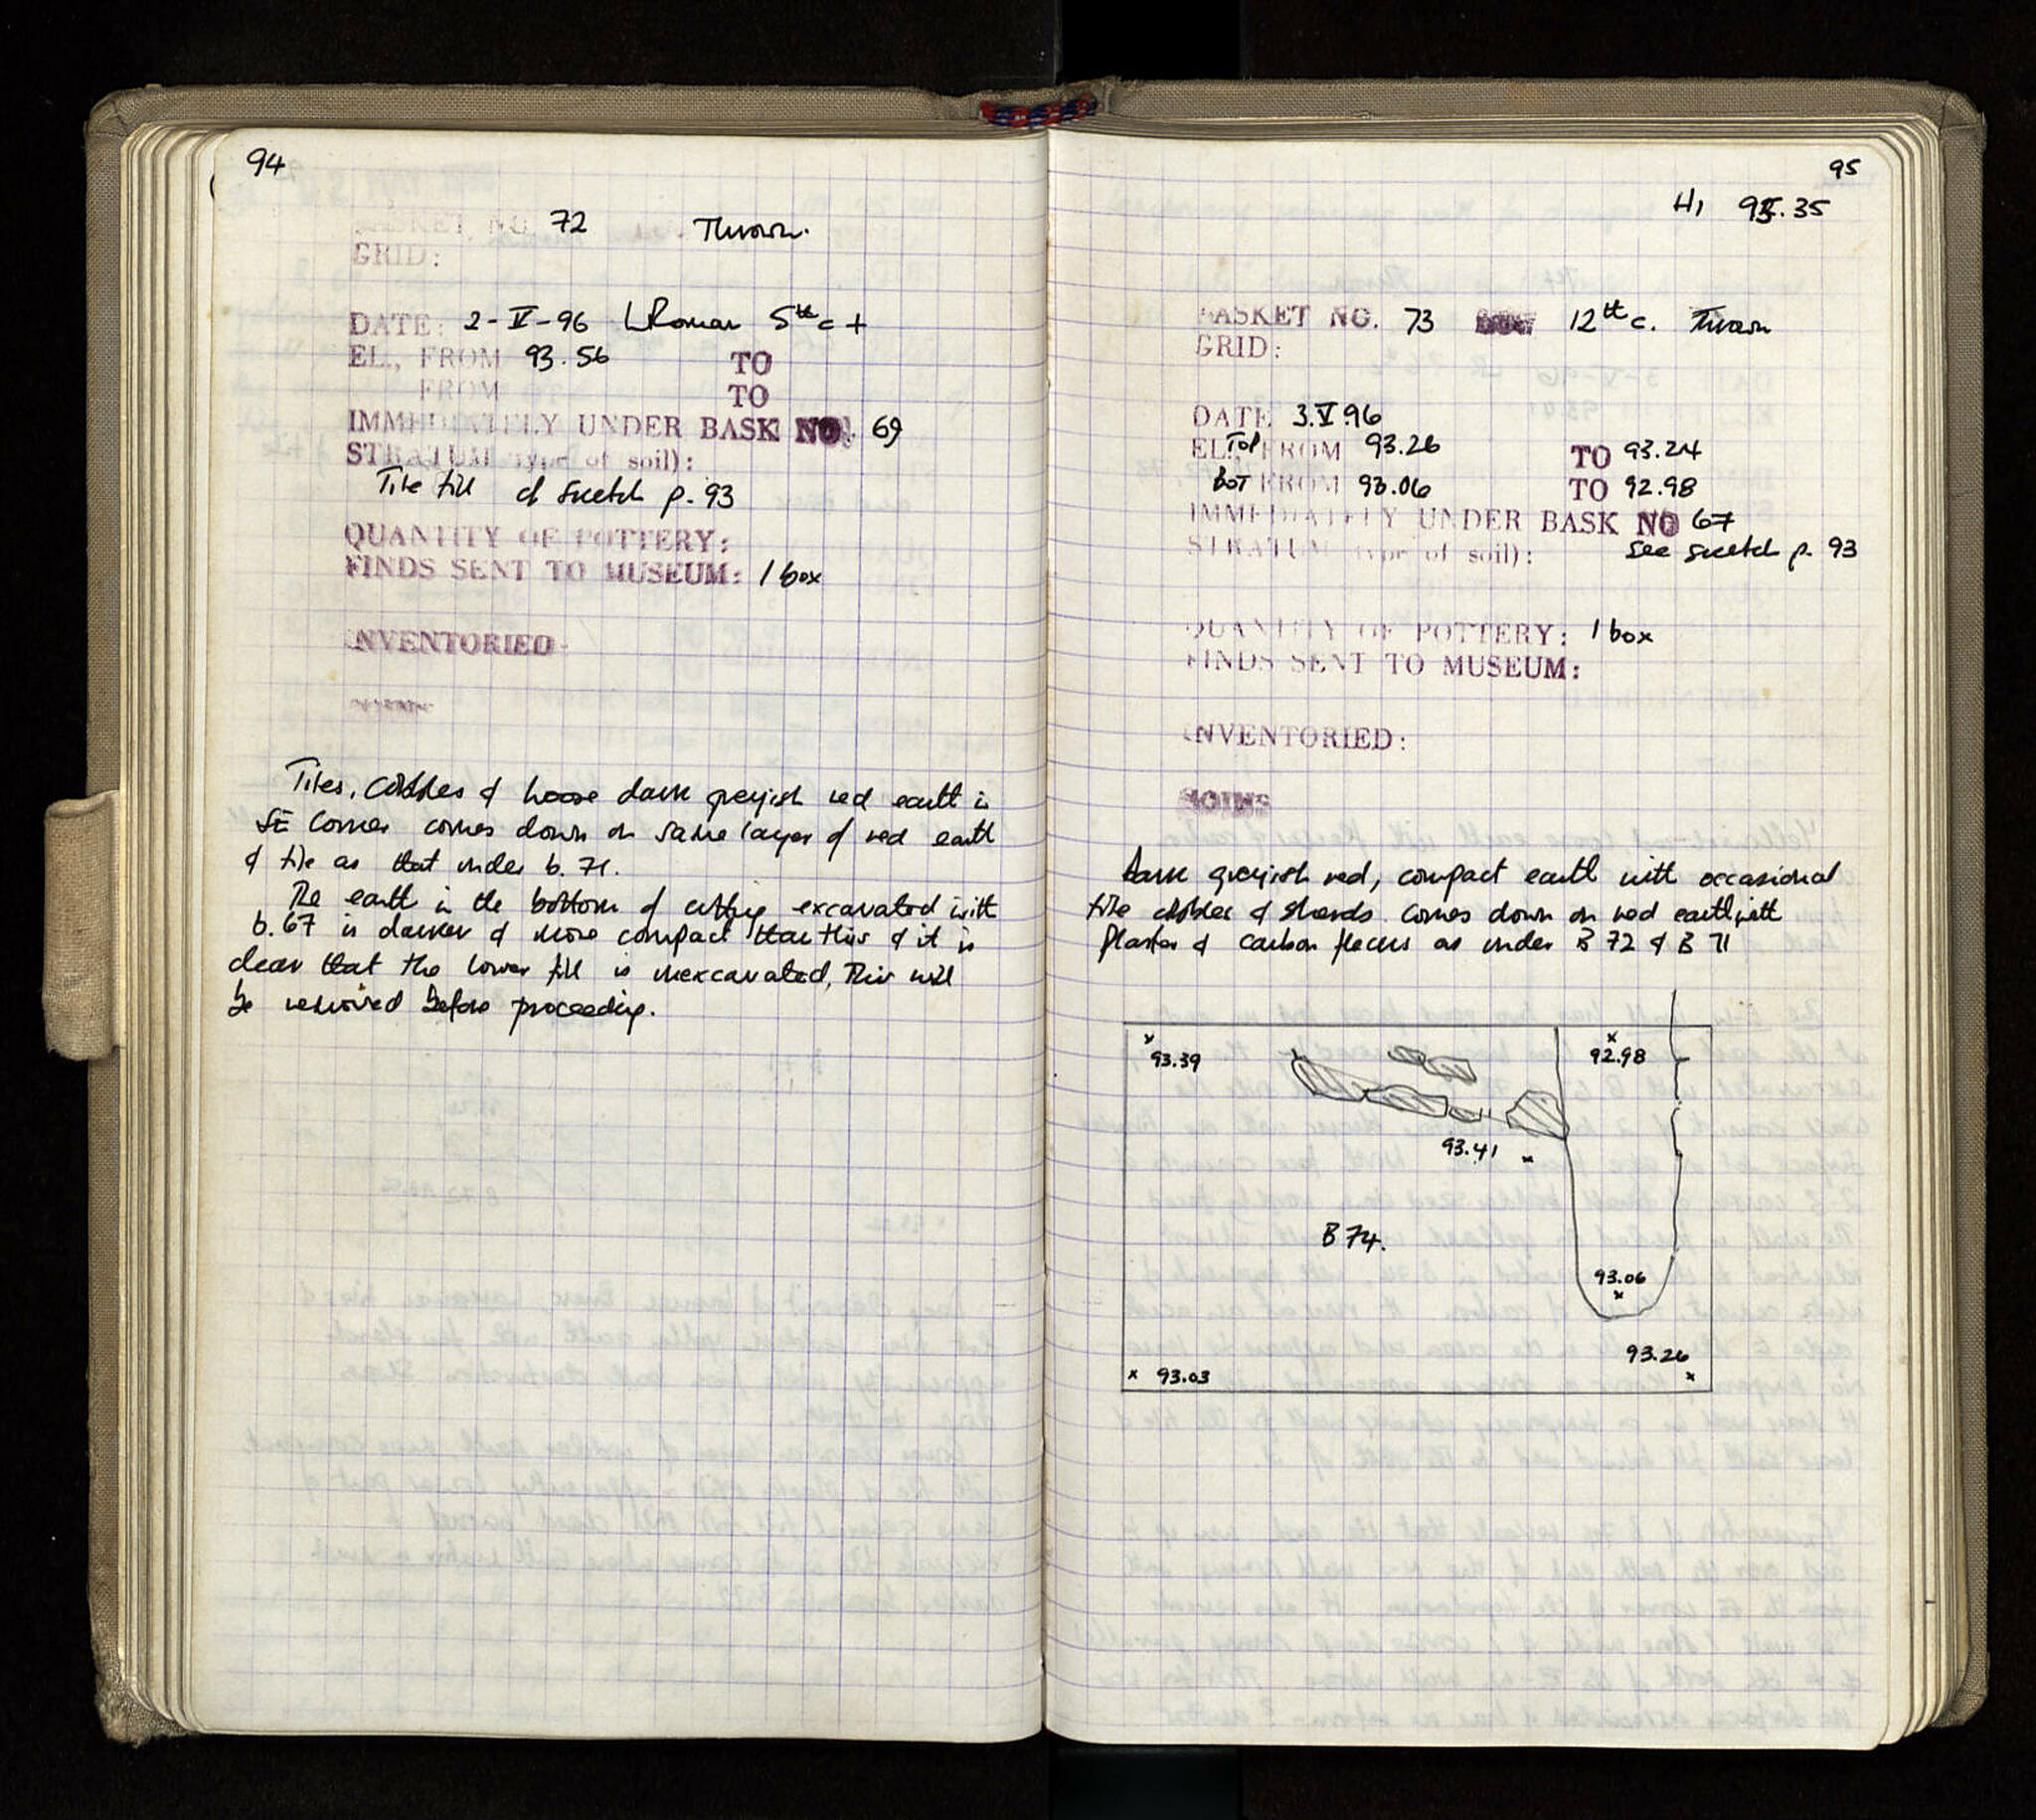 94
BASKET NO. 72 Thrown.
GRID:
DATE: 2-V-96 LRoman 5th c +
EL., FROM 93.56 TO
FROM TO
IMMEDIATELY UNDER BASK NO. 69
STRATUM (type of soil):
Tile fill cf sketch p. 93
QUANTITY OF POTTERY:
FINDS SENT TO MUSEUM: 1 box
INVENTORIED
Tiles, cobbles & loose dark greyish red earth in
SE corner comes down on same layer of red earth
& tile as that under b. 71.
The earth in the bottom of cutting excavated with
b. 67 is darker & more compact than this & it is
clear that the lower fill is unexcavated, This will
be removed before proceeding.
95
HI 95.35
BASKET NO. 73 12th c. Thrown
GRID:
DATE 3.V.96
EL., TOP FROM 93.26 TO 93.24
BOT FROM 93.06 TO 92.98
IMMEDIATELY UNDER BASK NO 67
STRATUM (type of soil): See sketch p. 93
QUANTITY OF POTTERY: 1 box
FINDS SENT TO MUSEUM:
INVENTORIED:
COINS
Dark greyish red, compact earth with occasional
tile cobbles & sherds. Comes down on red earth with
plaster & carbon flecks as under B 72 & B 71
x 93.39
x 92.98
93.41 x
B 74.
93.06 x
93.26 x
x 93.03